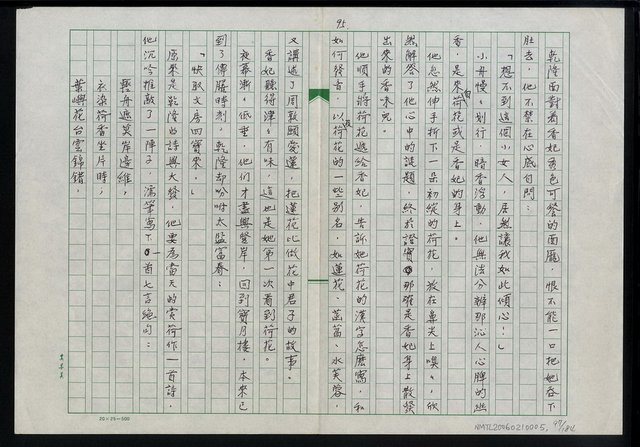 95
乾隆面對着香妃秀色可餐的面龐，恨不能一口把她吞下
肚去，他不禁在心底自問：
「想不到這個小女人，居然讓我如此傾心！」
小舟慢慢划行，暗香浮動，他無法分辨那沁人心脾的幽
香，是來自荷花或是香妃的身上。
他忽然伸手折下一朵初綻的荷花，放在鼻尖上嗅嗅，欣
然解答了他心中的謎題，終於證實那確是香妃身上散發
出來的香味兒。
他順手將荷花遞給香妃，告訴她荷花的漢字怎麼寫，和
如何發音，以及荷花的一些別名，如蓮花、菡萏、水芙蓉，
又講述了周敦頤愛蓮，把蓮花比做花中君子的故事。
香妃聽得津津有味，這也是她第一次看到荷花。
夜幕漸漸低垂，他們才盡興登岸，回到寶月樓，本來已
到了傳膳時刻，乾隆却吩咐太監富春：
「快取文房四寶來。」
原來是乾隆的詩興大發，他要為當天的賞荷作一首詩，
他沉吟推敲了一陣子，濡筆寫下一首七言絕句：
輕舟遮莫岸邊維，
衣染荷香坐片時；
葉嶼花台雲錦錯，
20×25=500
NMTL20060210005,
97/184